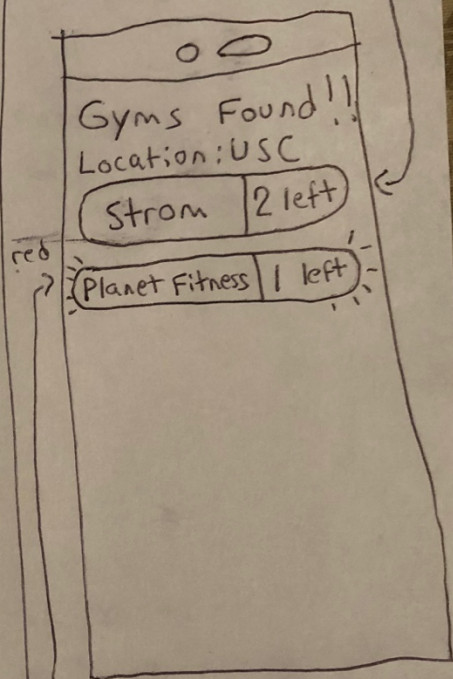 Gyms Found!!
Location: USC
Strom 2 left
red
Planet Fitness 1 left